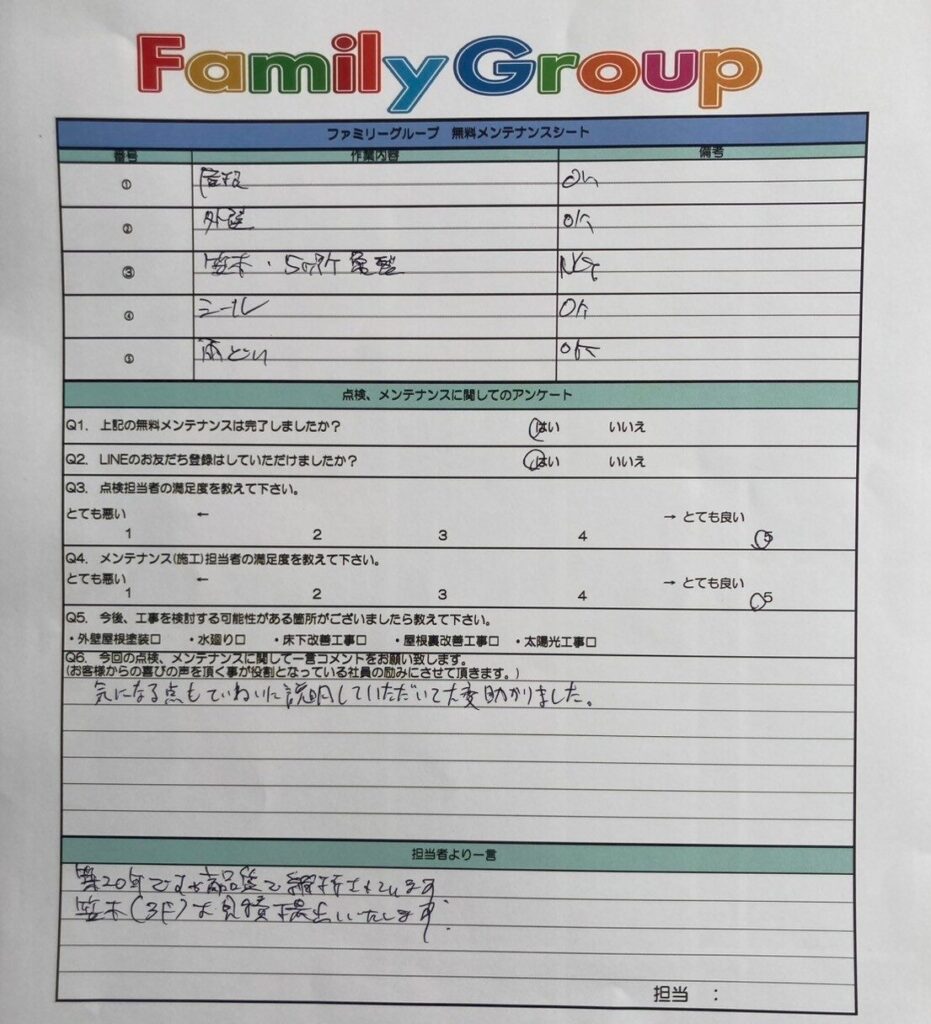 Family Group
ファミリーグループ 無料メンテナンスシート
番号 作業内容 備考
① 屋根 OK
② 外壁 OK
③ 笠木・5ヶ所 亀裂 NG
④ シール OK
⑤ 雨とい OK
点検、メンテナンスに関してのアンケート
Q1. 上記の無料メンテナンスは完了しましたか? はい いいえ
Q2. LINEのお友だち登録はしていただけましたか? はい いいえ
Q3. 点検担当者の満足度を教えて下さい。
とても悪い ← → とても良い
1 2 3 4 5
Q4. メンテナンス(施工)担当者の満足度を教えて下さい。
とても悪い ← → とても良い
1 2 3 4 5
Q5. 今後、工事を検討する可能性がある箇所がございましたら教えて下さい。
・外壁屋根塗装□ ・水廻り□ ・床下改善工事□ ・屋根裏改善工事□ ・太陽光工事□
Q6. 今回の点検、メンテナンスに関して一言コメントをお願い致します。
(お客様からの喜びの声を頂く事が役割となっている社員の励みにさせて頂きます。)
気になる点もていねいに説明していただいて大変助かりました。
担当者より一言
築20年ですが高品質で維持されています
笠木(3F)お見積提出いたします。
担当 :